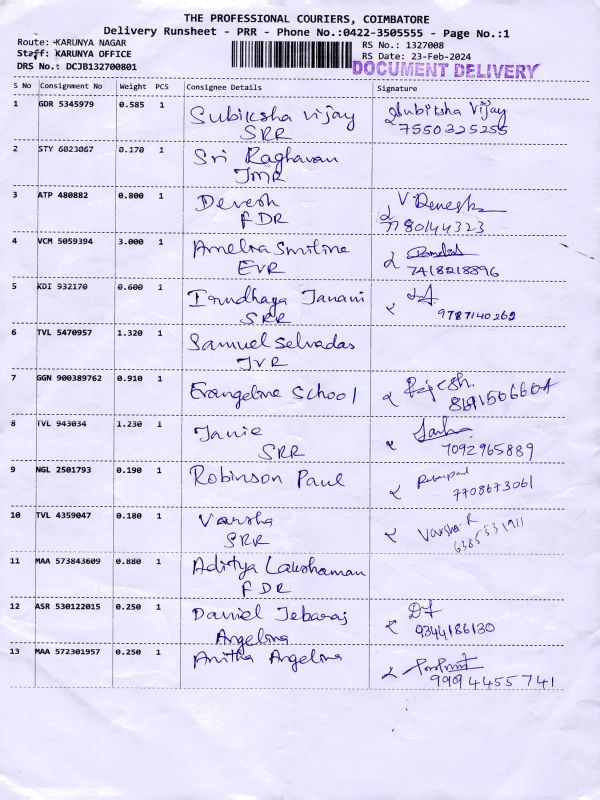 THE PROFESSIONAL COURIERS, COIMBATORE
Delivery Runsheet - PRR - Phone No.:0422-3505555 - Page No.:1
Route: KARUNYA NAGAR
RS No.: 1327008
Staff: KARUNYA OFFICE
RS Date: 23-Feb-2024
DRS No.: DCJB132700801
DOCUMENT DELIVERY
S No Consignment No Weight PCS Consignee Details Signature
1 GDR 5345979 0.585 1 Subiksha Vijay Subiksha Vijay
SRR 7550325255
2 STY 6023067 0.170 1 Sri Raghavan
JMR
3 ATP 480882 0.800 1 Devesh V Devesh
FDR 7780144323
4 VCM 5059394 3.000 1 Amelia Smiline
EVR 7418218896
5 KDI 932170 0.600 1 Irudhaya Janani
SRR 9787140262
6 TVL 5470957 1.320 1 Samuel Selvadas
JVR
7 GGN 900389762 0.910 1 Evangeline School Rajesh.
8 TVL 943034 1.230 1 Janie
SRR 7092965889
9 NGL 2501793 0.190 1 Robinson Paul
7708673061
10 TVL 4359047 0.180 1 Varsha Varsha R
SRR 6385531911
11 MAA 573843609 0.880 1 Aditya Lakshaman
FDR
12 ASR 530122015 0.250 1 Daniel Jebaraj
Angelina 9344186130
13 MAA 572301957 0.250 1 Anitha Angelina
9994455741